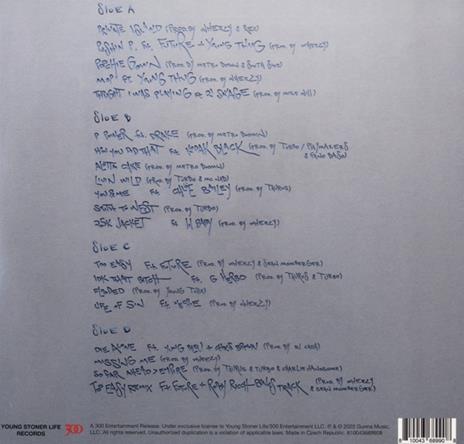 SIDE A
PRIVATE ISLAND (PROD BY WHEEZY &
PUSHIN P. Ft. FUTURE + YOUNG THUG (PROD. BY WHEEZY)
POOCHIE GOWN (PROD. BY METRO BOOMIN & SOUTH SIDE)
MOP Ft. YOUNG THUG (PROD. BY WHEEZY)
THOUGHT I WAS PLAYING Ft. 21 SAVAGE (PROD. BY
SIDE B
P POWER Ft. DRAKE (PROD. BY METRO BOOMIN)
HOW YOU DID THAT Ft. KODAK BLACK (PROD. BY TURBO /
ALOTTA CAKE (PROD. BY METRO BOOMIN)
LIVIN WILD (PROD. BY TURBO &
YOU & ME Ft. CHLOE BAILEY (PROD. BY TAURUS)
SOUTH TO WEST (PROD. BY TURBO)
25K JACKET Ft. LIL BABY (PROD. BY WHEEZY)
SIDE C
TOO EASY Ft. FUTURE (PROD. BY WHEEZY & SEAN MOMBERGER)
IDK THAT BITCH Ft. G HERBO (PROD. BY TAURUS & TURBO)
FLOODED (PROD. BY
LIFE OF SIN Ft. (PROD. BY WHEEZY)
SIDE D
DIE ALONE Ft. YUNG BLEU + CHRIS BROWN (PROD. BY
MISSING ME (PROD. BY WHEEZY)
SO FAR AHEAD > EMPIRE (PROD. BY TAURUS & TURBO & CHARLIE HANDSOME)
TOO EASY REMIX Ft. FUTURE + RODDY RICCH - BONUS TRACK (PROD. BY WHEEZY
& SEAN MOMBERGER)
YOUNG STONER LIFE
RECORDS
300
A 300 Entertainment Release. Under exclusive license to Young Stoner Life/300 Entertainment LLC. ℗ & © 2022 Gunna Music,
LLC. All rights reserved. Unauthorized duplication is a violation of applicable laws. Made in Czech Republic.